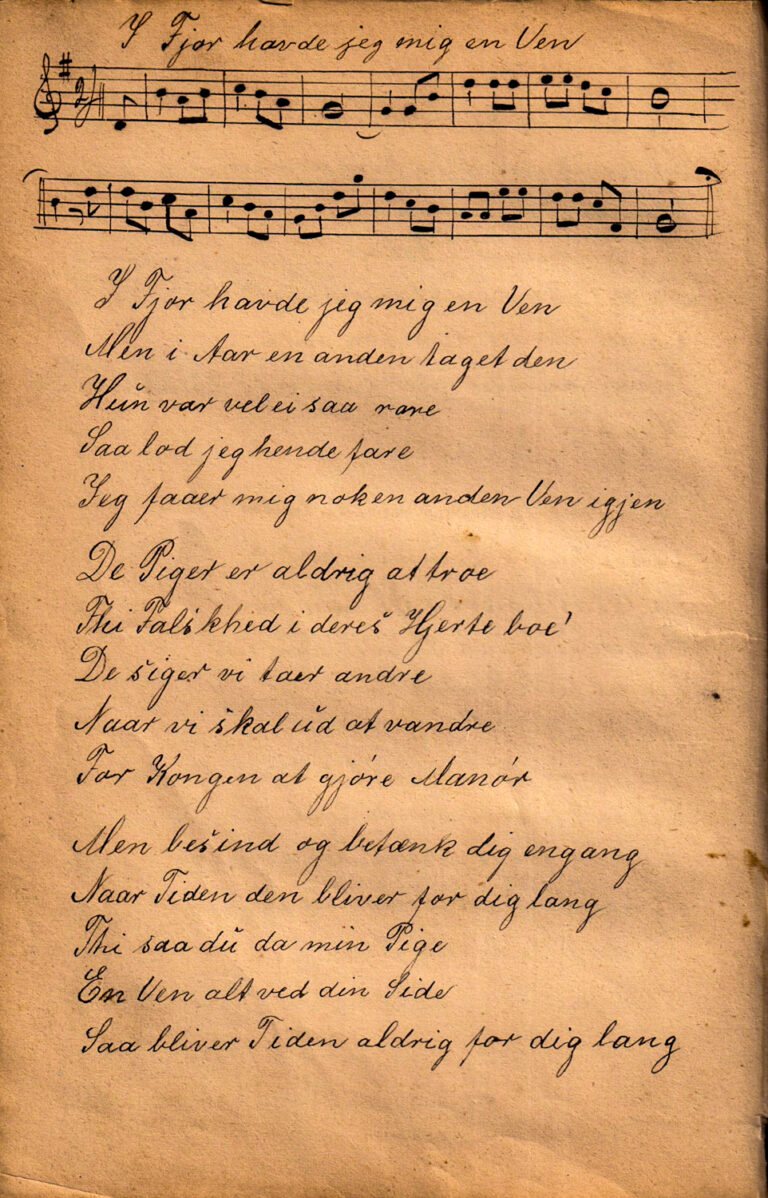 I Fjor havde jeg mig en Ven
I Fjor havde jeg mig en Ven
Men i Aar en anden taget den
Hun var vel ei saa rare
Saa lod jeg hende fare
Jeg faaer mig nok en anden Ven igjen
De Piger er aldrig at troe
Thi Falskhed i deres Hjerte boe'
De siger vi taer andre
Naar vi skal ud at vandre
For Kongen at gjøre Manør
Men besind og betænk dig engang
Naar Tiden den bliver for dig lang
Thi saa du da min Pige
En Ven alt ved din Side
Saa bliver Tiden aldrig for dig lang